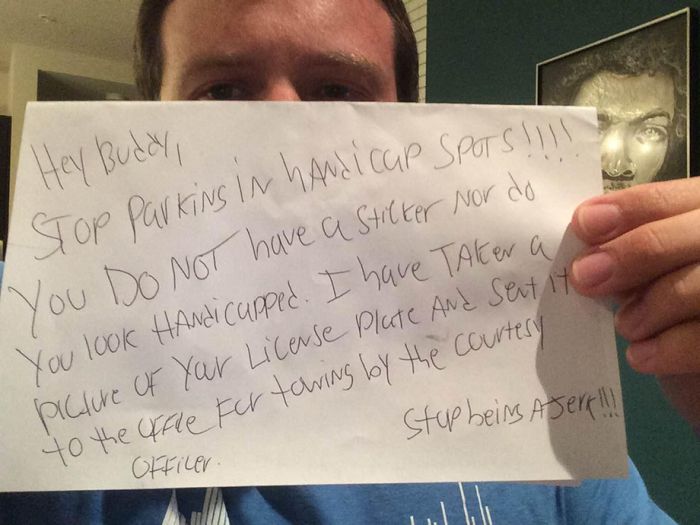 Hey Buddy,
STOP Parking in hANdicap SPOTS!!!!
You DO NOT have a Sticker Nor do
You look HANdicapped. I have TAKen a
picture of Your License Plate And Sent it
to the office For towing by the courtesy
OFFicer.
Stop being A Jerk!!!